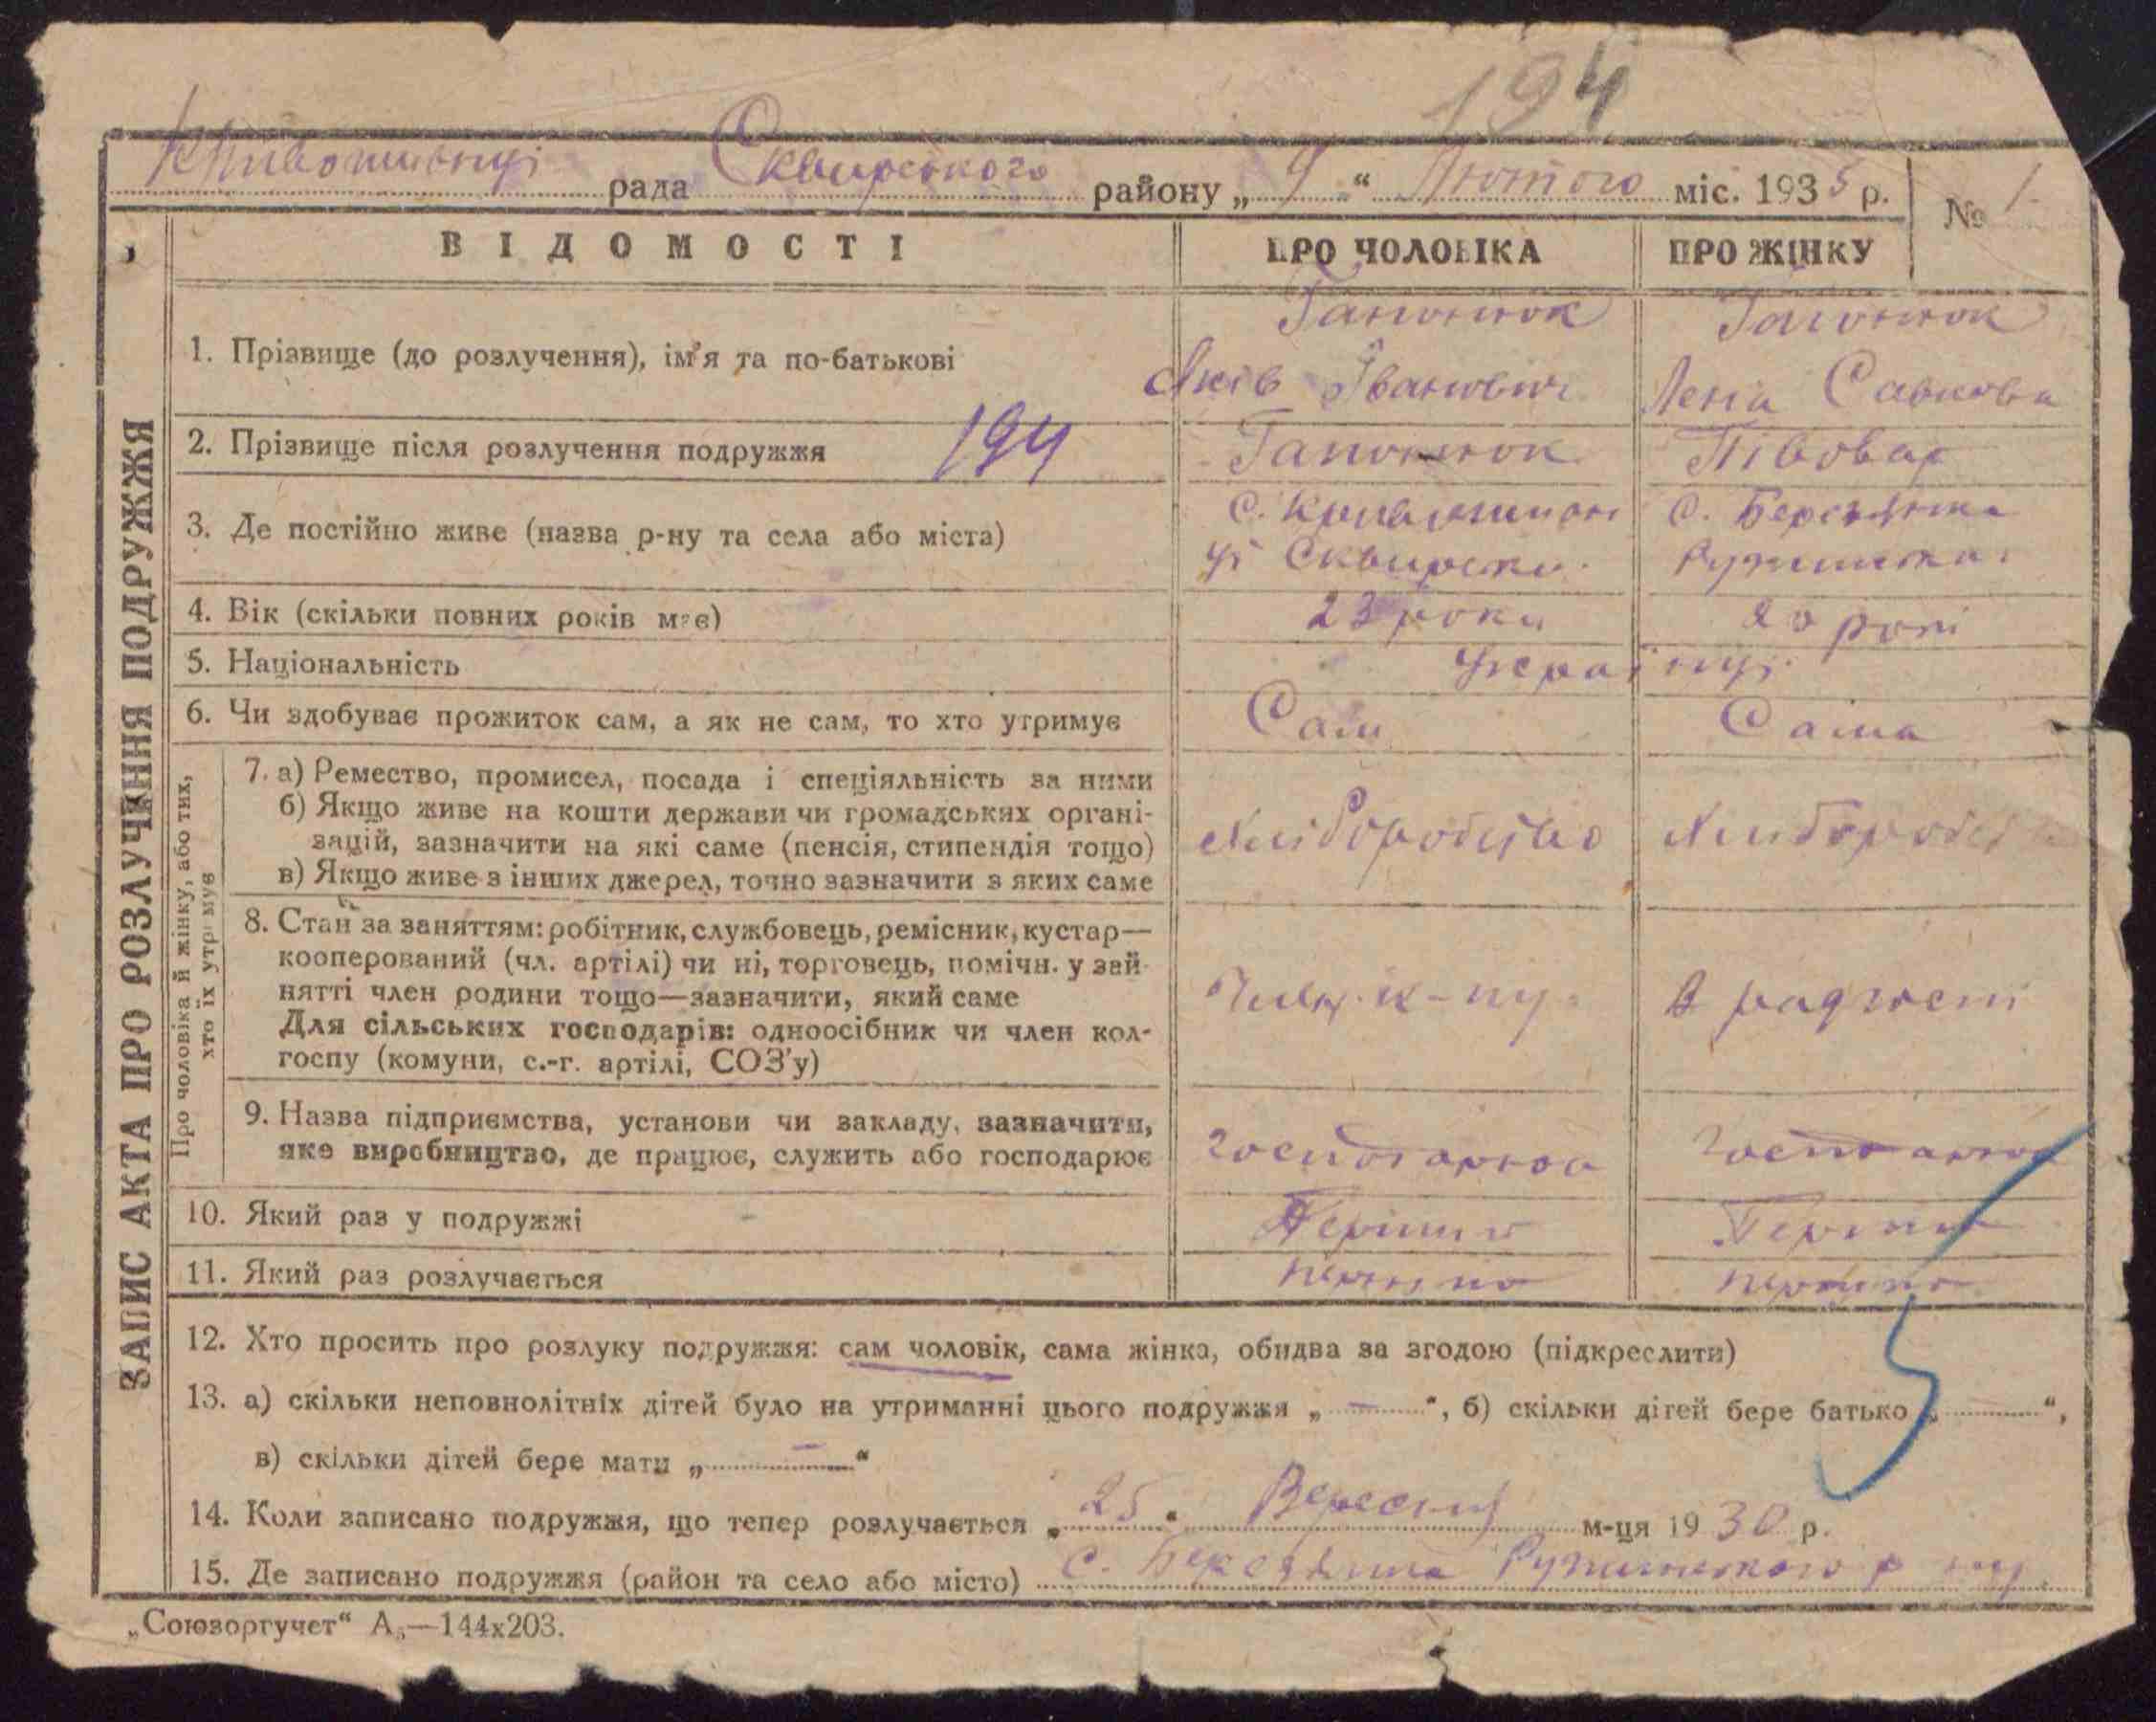 194
Кривошиїнці рада Сквирського району „ 9 “ Лютого міс. 1935 р.
№ 1
ВІДОМОСТІ ПРО ЧОЛОВІКА ПРО ЖІНКУ
ЗАПИС АКТА ПРО РОЗЛУЧЕННЯ ПОДРУЖЖЯ
1. Прізвище (до розлучення), ім'я та по-батькові
Гапонюк
Яків Іванович
Гапонюк
Лена Савкова
2. Прізвище після розлучення подружжя 194 Гапонюк Півовар
3. Де постійно живе (назва р-ну та села або міста)
с. Кривошиїн
ці Сквирськ.
с. Березянка
Ружинськ.
4. Вік (скільки повних років має) 23 роки 20 рокі
5. Національність Українці
6. Чи здобуває прожиток сам, а як не сам, то хто утримує Сам Сама
Про чоловіка й жінку, або тих,
хто їх утримує
7. а) Ремество, промисел, посада і спеціяльність за ними
б) Якщо живе на кошти держави чи громадських органі-
зацій, зазначити на які саме (пенсія, стипендія тощо)
в) Якщо живе з інших джерел, точно зазначити з яких саме
Хліборобство Хлібороб
8. Стан за заняттям: робітник, службовець, ремісник, кустар—
кооперований (чл. артілі) чи ні, торговець, помічн. у зай-
нятті член родини тощо—зазначити, який саме
Для сільських господарів: одноосібник чи член кол-
госпу (комуни, с.-г. артілі, СОЗ'у)
Член. к-пу В радгоспі
9. Назва підприємства, установи чи закладу, зазначити,
яке виробництво, де працює, служить або господарює
10. Який раз у подружжі Перший Перший
11. Який раз розлучається перший перший
12. Хто просить про розлуку подружжя: сам чоловік, сама жінка, обидва за згодою (підкреслити)
13. а) скільки неповнолітніх дітей було на утриманні цього подружжя „ — “, б) скільки дітей бере батько „ “,
в) скільки дітей бере мати „ — “
14. Коли записано подружжя, що тепер розлучається „ 25 “ Вересня м-ця 1930 р.
15. Де записано подружжя (район та село або місто) с. Березянка Ружинського р-ну.
„Союзоргучет“ А₅—144х203.